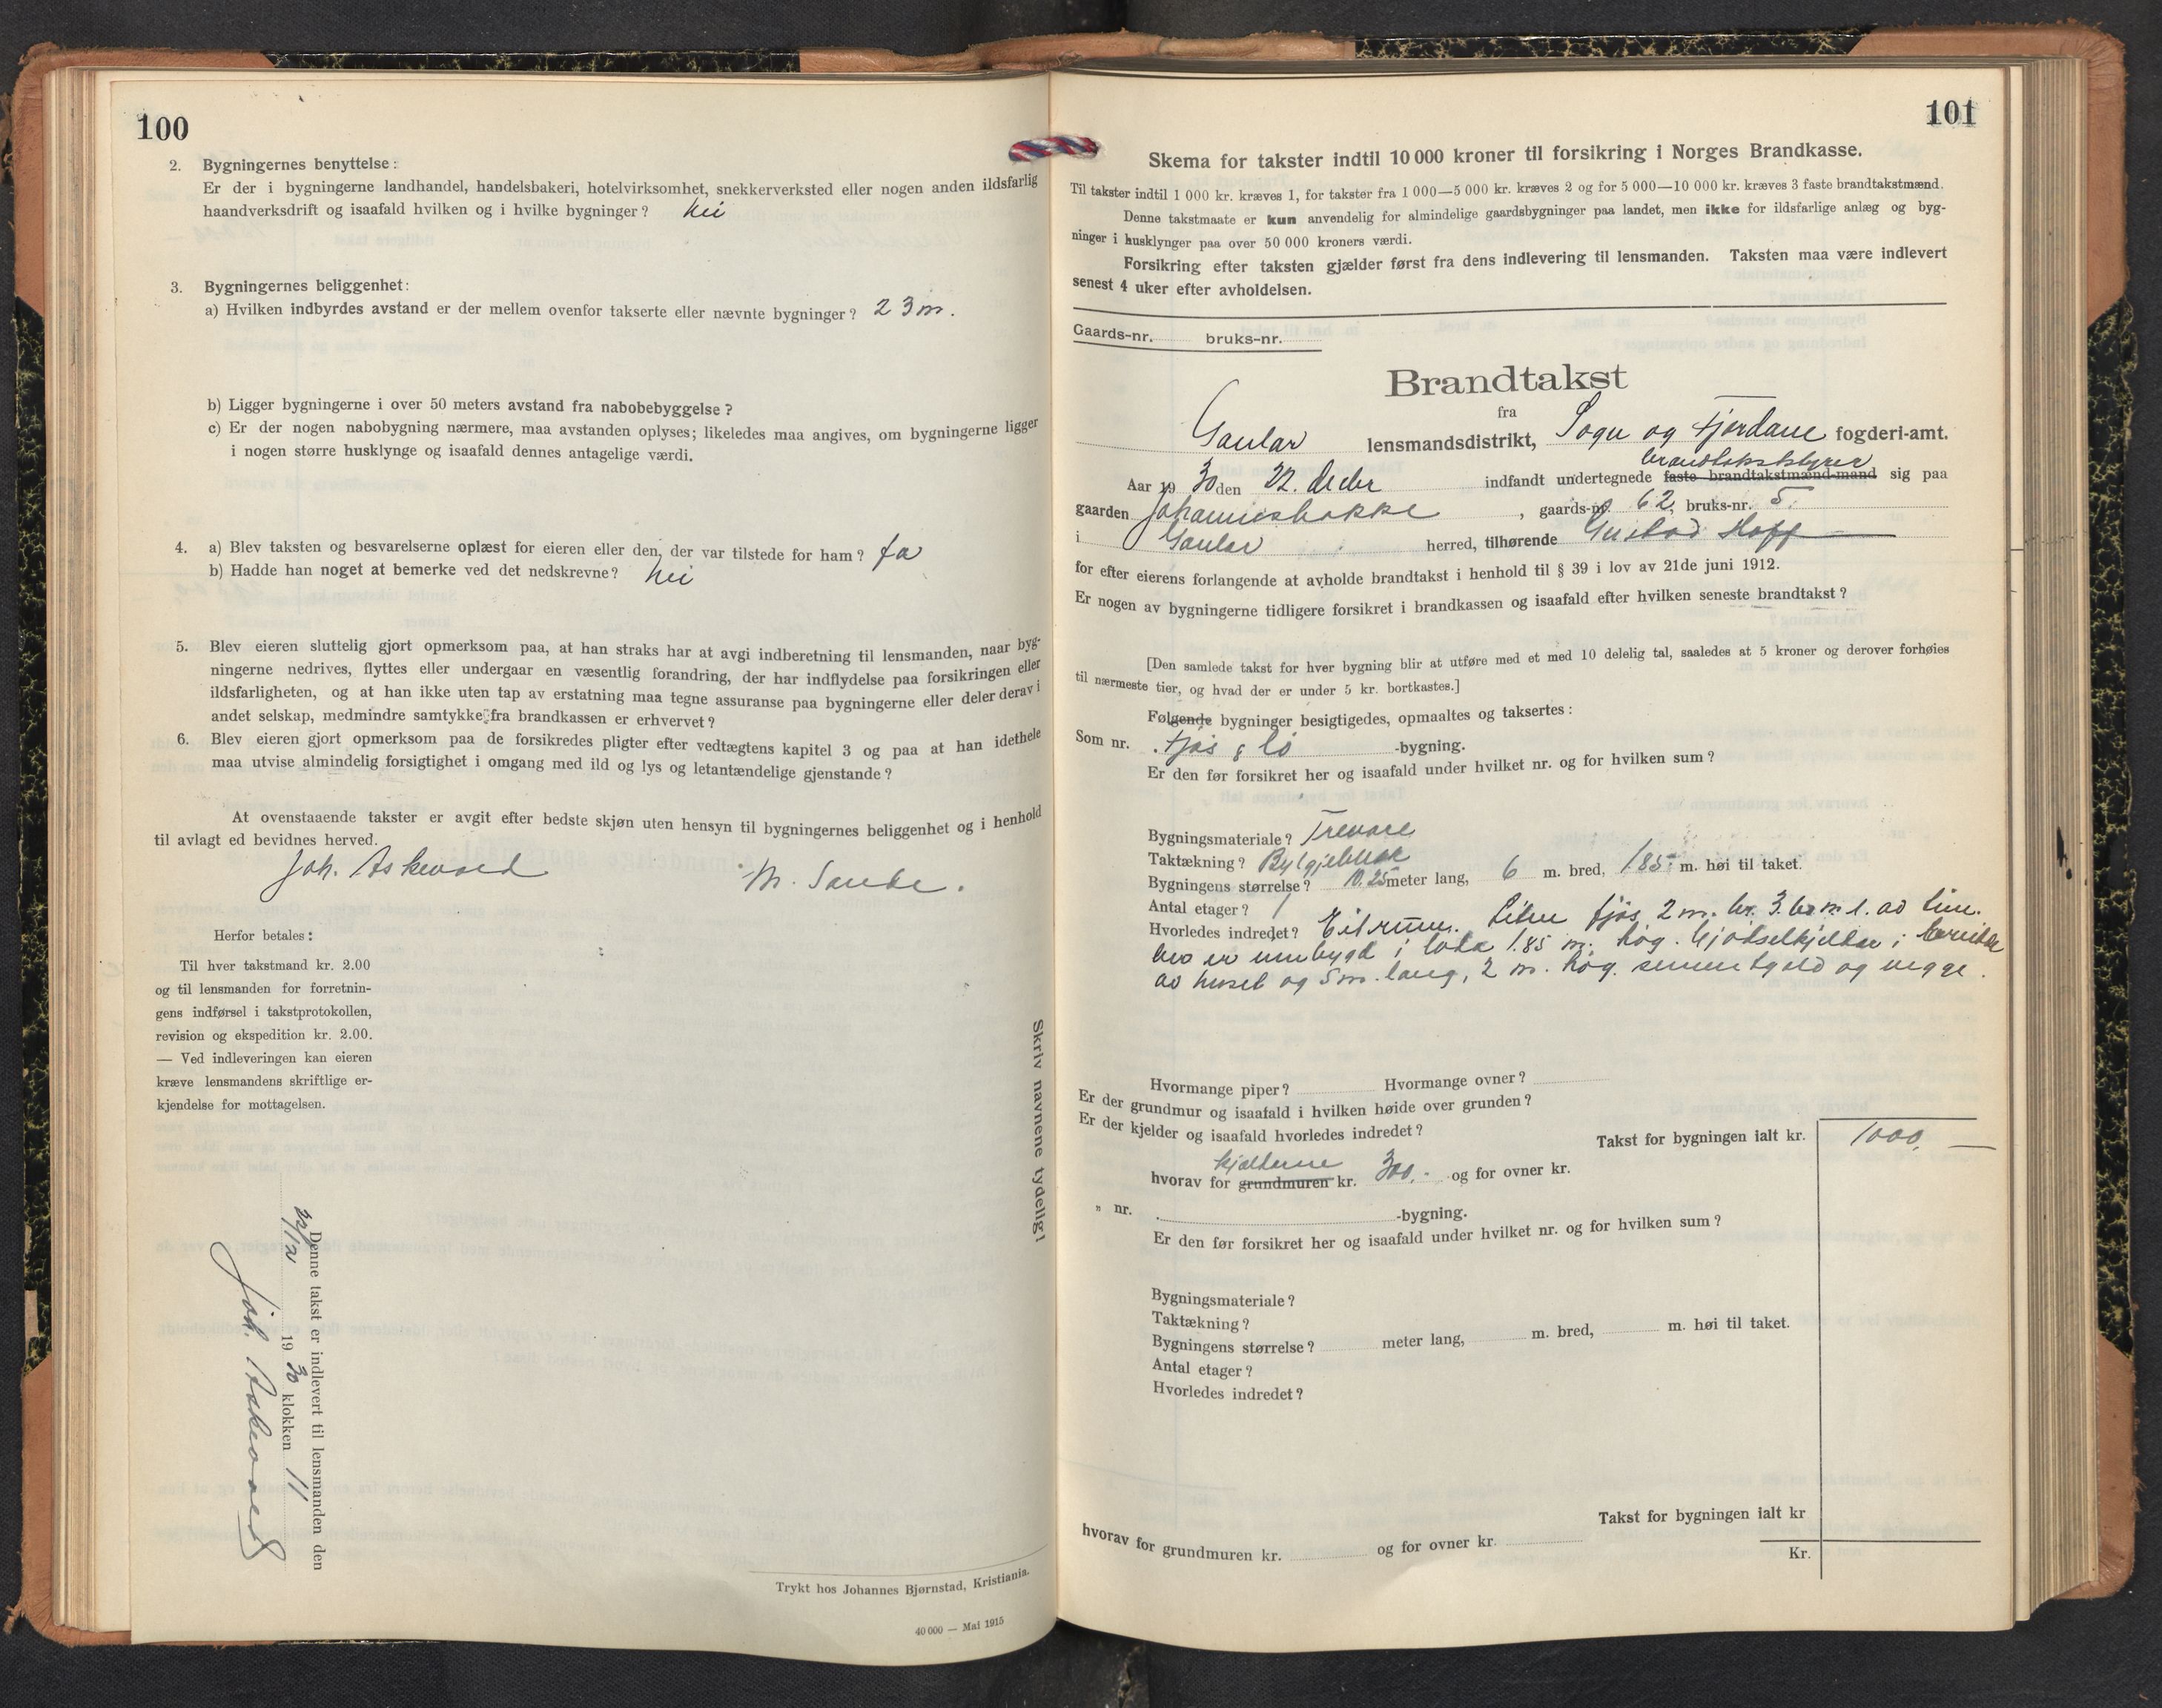 100
2. Bygningernes benyttelse:
Er der i bygningerne landhandel, handelsbakeri, hotelvirksomhet, snekkerverksted eller nogen anden ildsfarlig
haandverksdrift og isaafald hvilken og i hvilke bygninger? Nei
3. Bygningernes beliggenhet:
a) Hvilken indbyrdes avstand er der mellem ovenfor takserte eller nævnte bygninger? 23 m.
b) Ligger bygningerne i over 50 meters avstand fra nabobebyggelse?
c) Er der nogen nabobygning nærmere, maa avstanden oplyses; likeledes maa angives, om bygningerne ligger
i nogen større husklynge og isaafald dennes antagelige værdi.
4. a) Blev taksten og besvarelserne oplæst for eieren eller den, der var tilstede for ham? Ja
b) Hadde han noget at bemerke ved det nedskrevne? Nei
5. Blev eieren sluttelig gjort opmerksom paa, at han straks har at avgi indberetning til lensmanden, naar byg-
ningerne nedrives, flyttes eller undergaar en væsentlig forandring, der har indflydelse paa forsikringen eller
ildsfarligheten, og at han ikke uten tap av erstatning maa tegne assuranse paa bygningerne eller deler derav i
andet selskap, medmindre samtykke fra brandkassen er erhvervet?
6. Blev eieren gjort opmerksom paa de forsikredes pligter efter vedtægtens kapitel 3 og paa at han idethele
maa utvise almindelig forsigtighet i omgang med ild og lys og letantændelige gjenstande?
At ovenstaaende takster er avgit efter bedste skjøn uten hensyn til bygningernes beliggenhet og i henhold
til avlagt ed bevidnes herved.
Joh. Askevold M. Sande.
Herfor betales:
Til hver takstmand kr. 2.00
og til lensmanden for forretnin-
gens indførsel i takstprotokollen,
revision og ekspedition kr. 2.00.
— Ved indleveringen kan eieren
kræve lensmandens skriftlige er-
kjendelse for mottagelsen.
Denne takst er indlevert til lensmanden den
22/12 1930 klokken 11
Joh. Askevold
Skriv navnene tydelig!
Trykt hos Johannes Bjørnstad, Kristiania.
40 000 — Mai 1915
101
Skema for takster indtil 10 000 kroner til forsikring i Norges Brandkasse.
Til takster indtil 1 000 kr. kræves 1, for takster fra 1 000—5 000 kr. kræves 2 og for 5 000—10 000 kr. kræves 3 faste brandtakstmænd.
Denne takstmaate er kun anvendelig for almindelige gaardsbygninger paa landet, men ikke for ildsfarlige anlæg og byg-
ninger i husklynger paa over 50 000 kroners værdi.
Forsikring efter taksten gjælder først fra dens indlevering til lensmanden. Taksten maa være indlevert
senest 4 uker efter avholdelsen.
Gaards-nr. bruks-nr.
Brandtakst
fra
Gaular lensmandsdistrikt, Sogn og Fjordane fogderi-amt.
brandtakstbyrer
Aar 1930 den 22. decbr indfandt undertegnede faste brandtakstmænd-mand sig paa
gaarden Johannesbakke, gaards-nr. 62, bruks-nr. 5.
i Gaular herred, tilhørende Gustad Hoff
for efter eierens forlangende at avholde brandtakst i henhold til § 39 i lov av 21de juni 1912.
Er nogen av bygningerne tidligere forsikret i brandkassen og isaafald efter hvilken seneste brandtakst?
[Den samlede takst for hver bygning blir at utføre med et med 10 delelig tal, saaledes at 5 kroner og derover forhøies
til nærmeste tier, og hvad der er under 5 kr. bortkastes.]
Følgende bygninger besigtigedes, opmaaltes og taksertes:
Som nr. fjøs & lø -bygning.
Er den før forsikret her og isaafald under hvilket nr. og for hvilken sum?
Bygningsmateriale? Trevare
Taktækning? Bylgjeblikk
Bygningens størrelse? 10.25 meter lang, 6 m. bred, 1.85 m. høi til taket.
Antal etager? 1
Hvorledes indredet? Eit rum. Liten fjøs 2 m. br. 3. m l. av
er i 1.85 m. høg. Gjødselkjeldar i
av huset og 5 m. lang, 2 m. høg. sementgolv og vegge.
Hvormange piper? Hvormange ovner?
Er der grundmur og isaafald i hvilken høide over grunden?
Er der kjelder og isaafald hvorledes indredet?
Takst for bygningen ialt kr. 1000, —
kjelderne
hvorav for grundmuren kr. 300,- og for ovner kr.
" nr. -bygning.
Er den før forsikret her og isaafald under hvilket nr. og for hvilken sum?
Bygningsmateriale?
Taktækning?
Bygningens størrelse? meter lang, m. bred, m. høi til taket.
Antal etager?
Hvorledes indredet?
Takst for bygningen ialt kr
hvorav for grundmuren kr. og for ovner kr.
Kr.